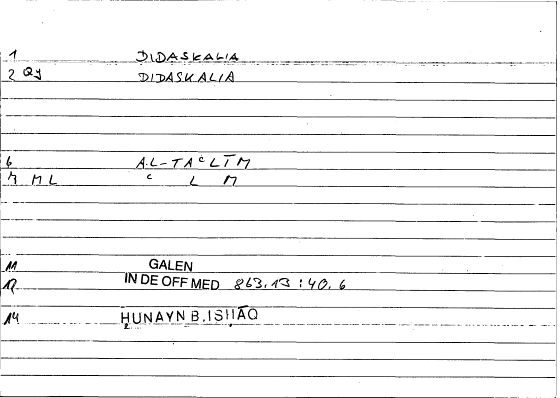 1 DIDASKALIA
2 QY DIDASKALIA
6 AL-TAᶜLĪM
7 ML ᶜ L M
11 GALEN
12 IN DE OFF MED 863.13 : 40.6
14 ḤUNAYN B. ISḤĀQ